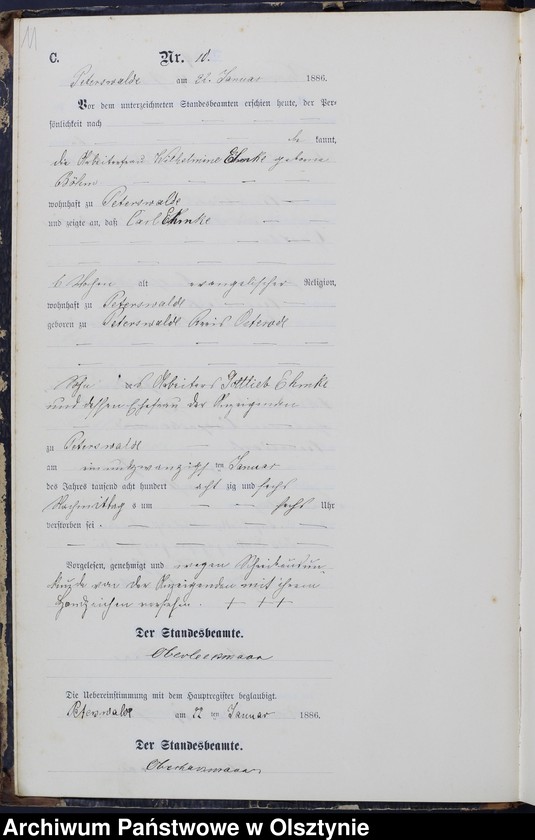 11
C.
Nr. 10.
Peterswalde am 22. Januar 1886.
Vor dem unterzeichneten Standesbeamten erschien heute, der Per-
sönlichkeit nach
be kannt,
die Arbeiterfrau Wilhelmine Ehmke geborne
Böhm
wohnhaft zu Peterswalde
und zeigte an, daß Carl Ehmke
6 Wochen alt evangelischer Religion,
wohnhaft zu Peterswalde
geboren zu Peterswalde Kreis Osterode
Sohn des Arbeiters Gottlieb Ehmke
und dessen Ehefrau der Anzeigenden
zu Peterswalde
am einundzwanzigsten Januar
des Jahres tausend acht hundert acht zig und sechs
Nachmittags um sechs Uhr
verstorben sei.
Vorgelesen, genehmigt und wegen Schreibensun-
kunde von der Anzeigenden mit ihrem
Handzeichen versehen. + + +
Der Standesbeamte.
Die Uebereinstimmung mit dem Hauptregister beglaubigt.
Peterswalde am 22 ten Januar 1886.
Der Standesbeamte.
Archiwum Państwowe w Olsztynie